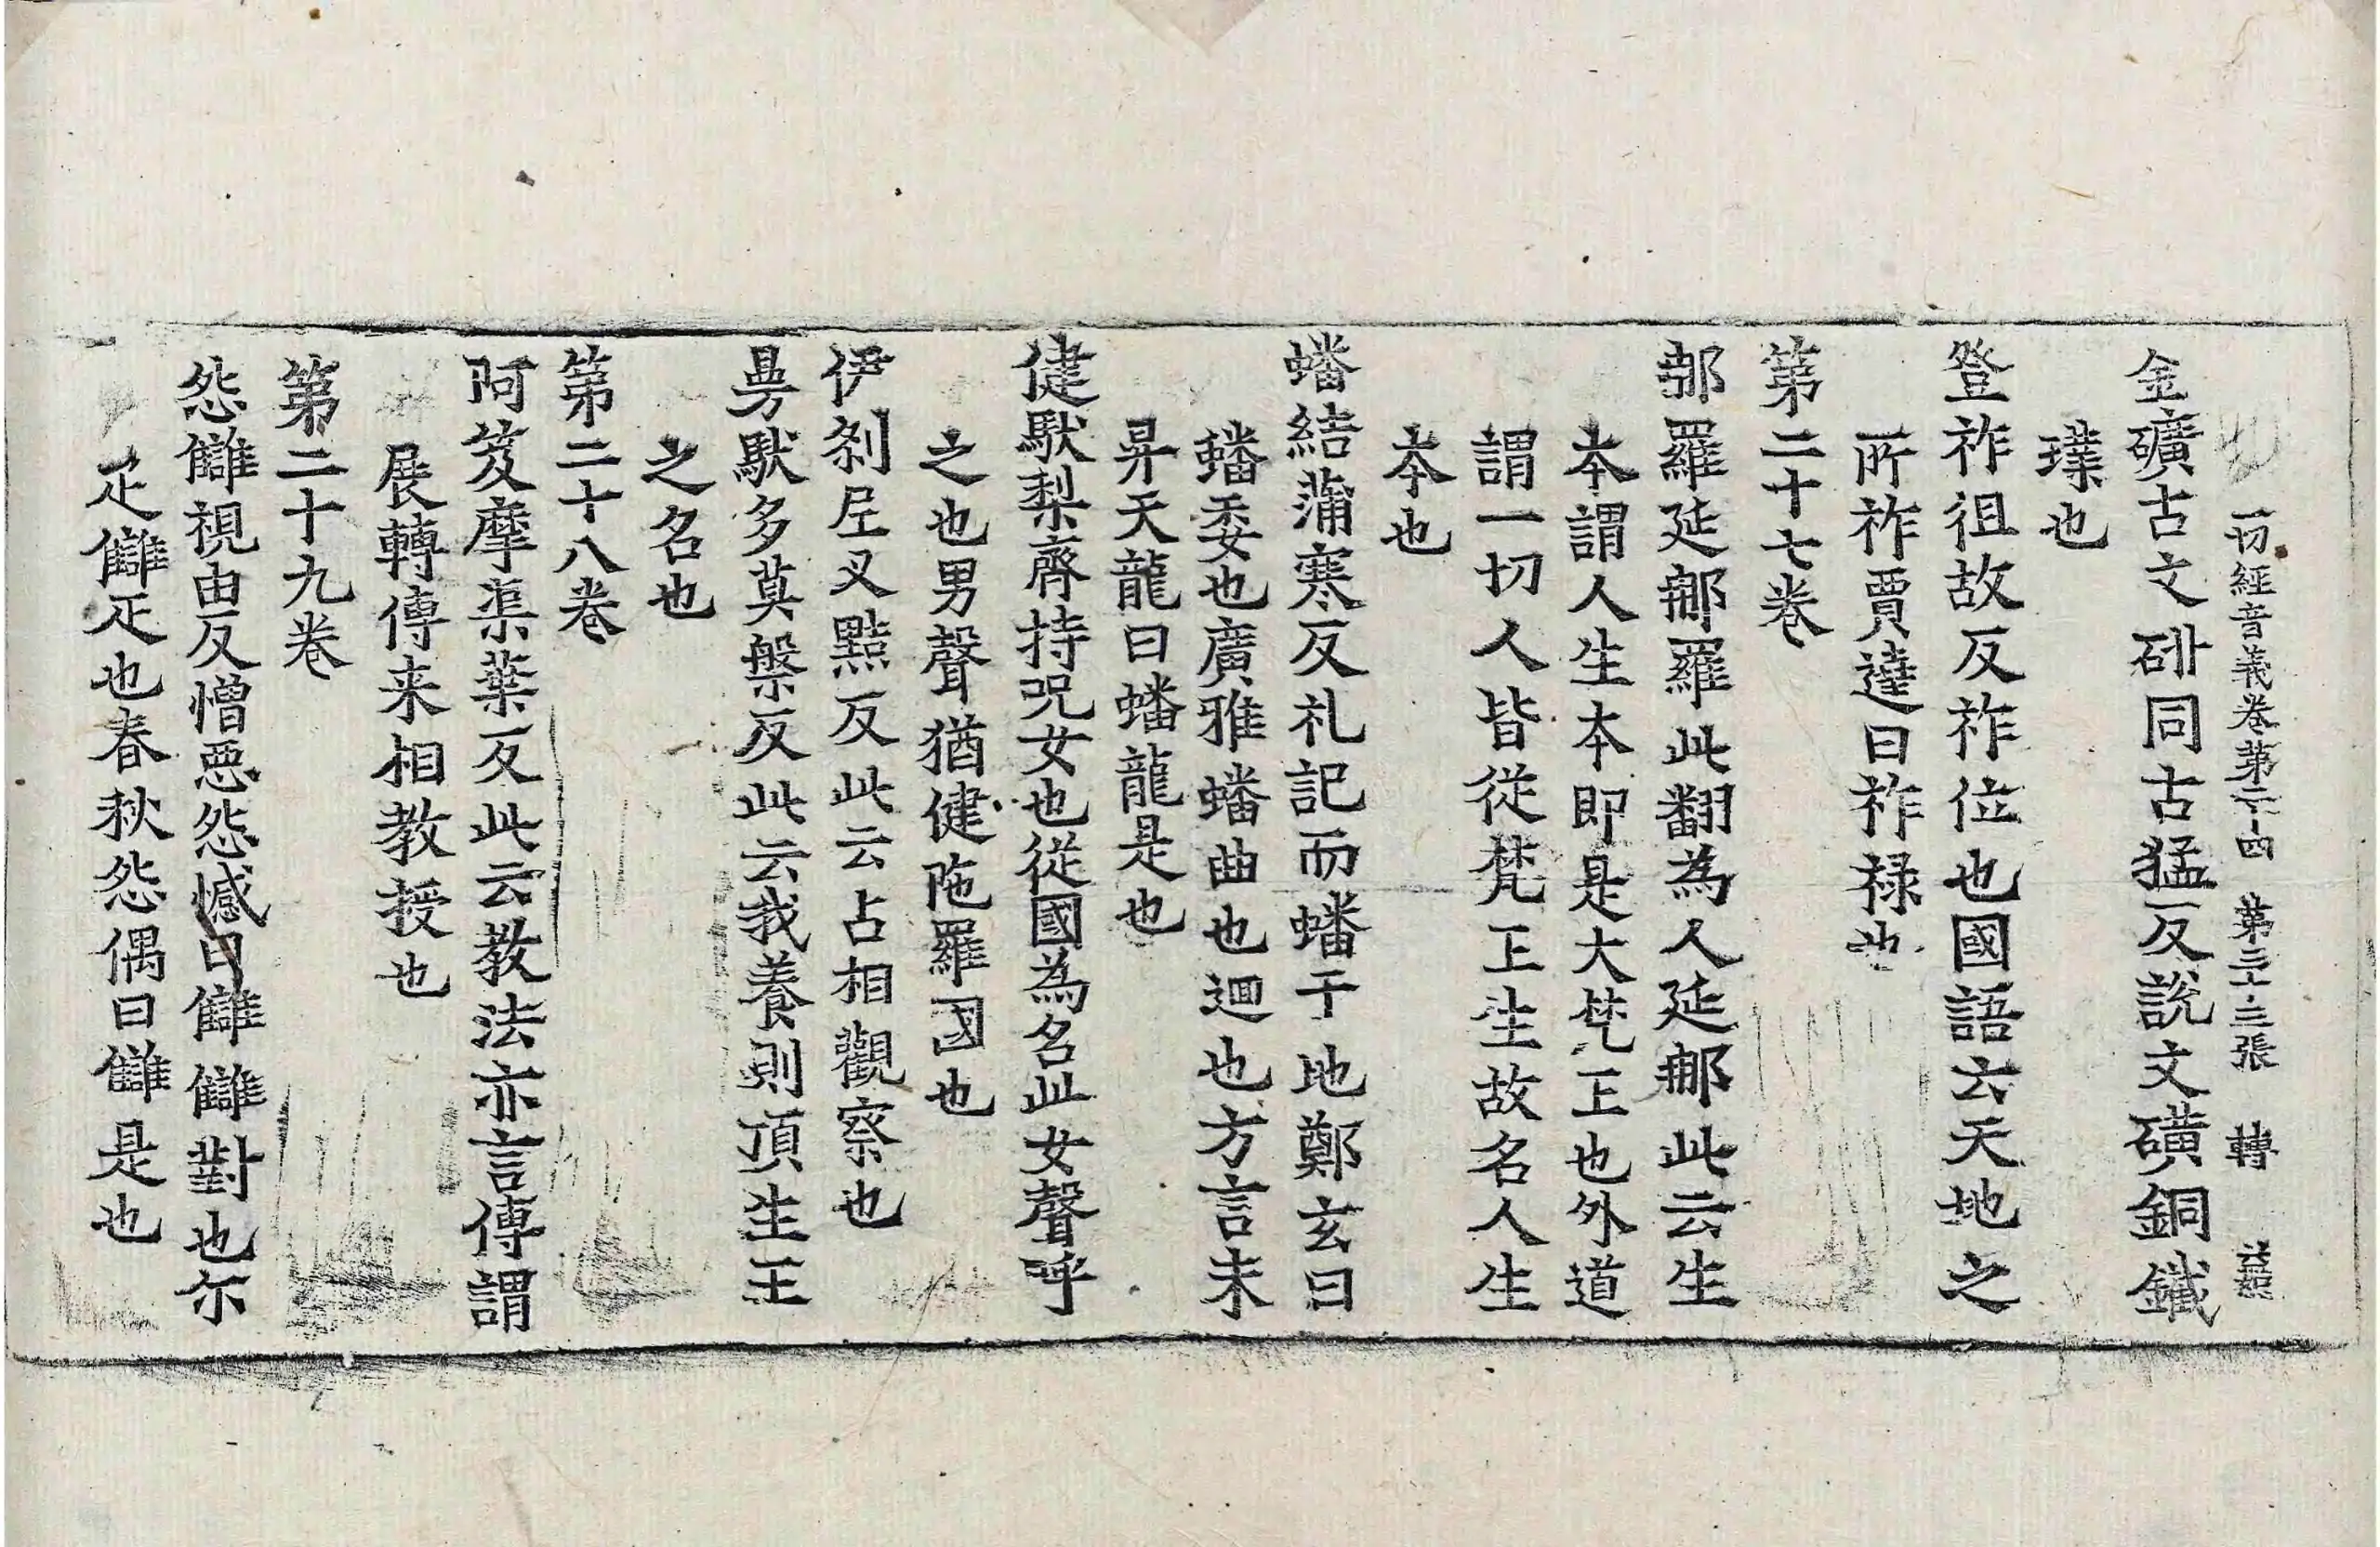 一切經音義卷第二十四 第三十三張 轉
金礦古文𥐫同古猛反說文礦銅鐵
璞也
登祚徂故反祚位也國語云天地之
所祚賈逵曰祚禄也
第二十七卷
郍羅延郍羅此翻為人延郍此云生
本謂人生本即是大梵王也外道
謂一切人皆從梵王生故名人生
本也
蟠結蒲寒反礼記而蟠于地鄭玄曰
蟠委也廣雅蟠曲也迴也方言未
昇天龍曰蟠龍是也
健馱梨齊持呪女也從國為名此女聲呼
之也男聲猶健陁羅國也
伊剎尼叉㸃反此云占相觀察也
曼馱多莫槃反此云我養則頂生王
之名也
第二十八卷
阿笈摩渠葉反此云教法亦言傳謂
展轉傳来相教授也
第二十九卷
怨讎視由反憎惡怨憾曰讎讎對也尓
疋讎疋也春秋怨偶曰讎是也